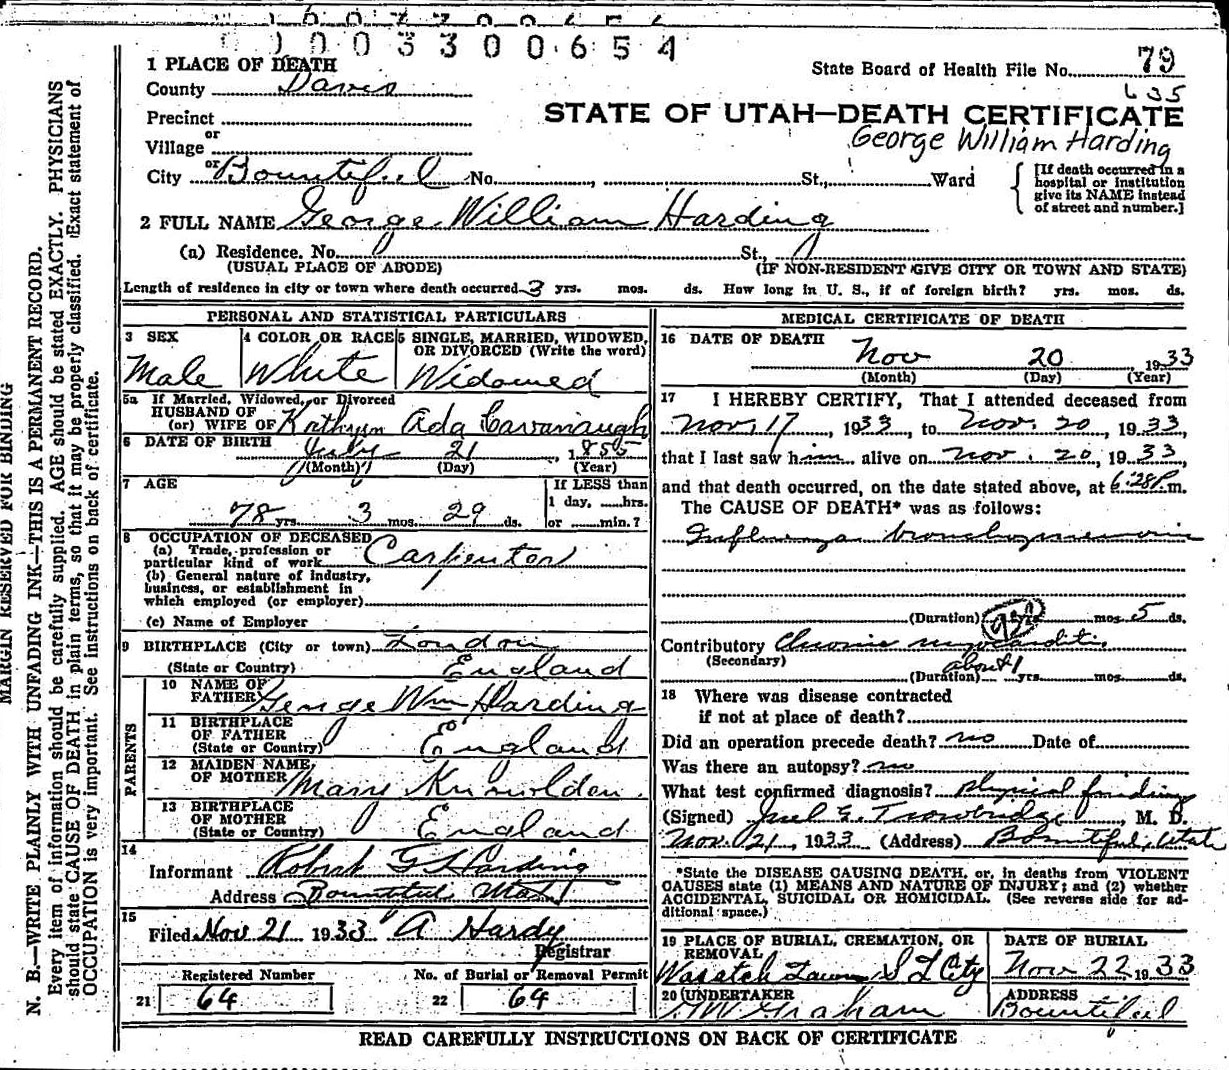 0003300654
1 PLACE OF DEATH
County Davis
State Board of Health File No. 79
635
STATE OF UTAH—DEATH CERTIFICATE
George William Harding
Precinct
or
Village
or
City Bountiful No. , St., Ward
[If death occurred in a hospital or institution give its NAME instead of street and number.]
2 FULL NAME George William Harding
(a) Residence. No. St.,
(USUAL PLACE OF ABODE) (IF NON-RESIDENT GIVE CITY OR TOWN AND STATE)
Length of residence in city or town where death occurred 3 yrs. mos. ds. How long in U. S., if of foreign birth? yrs. mos. ds.
PERSONAL AND STATISTICAL PARTICULARS
3 SEX
Male
4 COLOR OR RACE
White
5 SINGLE, MARRIED, WIDOWED, OR DIVORCED (Write the word)
Widowed
5a If Married, Widowed, or Divorced
HUSBAND OF
(or) WIFE OF Kathryn Ada Cavanaugh
6 DATE OF BIRTH July 21, 1855
(Month) (Day) (Year)
7 AGE
78 yrs. 3 mos. 29 ds.
If LESS than
1 day, ......hrs.
or ......min.?
8 OCCUPATION OF DECEASED
(a) Trade, profession or
particular kind of work Carpenter
(b) General nature of industry,
business, or establishment in
which employed (or employer)
(c) Name of Employer
9 BIRTHPLACE (City or town) London
(State or Country) England
PARENTS
10 NAME OF
FATHER George Wm Harding
11 BIRTHPLACE
OF FATHER
(State or Country) England
12 MAIDEN NAME
OF MOTHER Mary
13 BIRTHPLACE
OF MOTHER
(State or Country) England
14
Informant Robert G Harding
Address Bountiful Utah
15
Filed Nov 21 1933 A Hardy
Registrar
Registered Number No. of Burial or Removal Permit
21 64 22 64
MEDICAL CERTIFICATE OF DEATH
16 DATE OF DEATH Nov 20 1933
(Month) (Day) (Year)
17 I HEREBY CERTIFY, That I attended deceased from
Nov. 17, 1933, to Nov. 20, 1933,
that I last saw him alive on Nov. 20, 1933,
and that death occurred, on the date stated above, at 6:28P.m.
The CAUSE OF DEATH* was as follows:
Influenza bronchopneumonia
(Duration) yrs. mos. 5 ds.
Contributory Chronic myocarditis
(Secondary)
(Duration) about 1 yrs. mos. ds.
18 Where was disease contracted
if not at place of death?
Did an operation precede death? no Date of
Was there an autopsy? no
What test confirmed diagnosis? physical findings
(Signed) E. Trowbridge, M. D.
Nov. 21, 1933 (Address) Bountiful, Utah
*State the DISEASE CAUSING DEATH, or, in deaths from VIOLENT
CAUSES state (1) MEANS AND NATURE OF INJURY; and (2) whether
ACCIDENTAL, SUICIDAL OR HOMICIDAL. (See reverse side for ad-
ditional space.)
19 PLACE OF BURIAL, CREMATION, OR
REMOVAL
Wasatch Lawn S L City
DATE OF BURIAL
Nov 22 1933
20 UNDERTAKER
Graham
ADDRESS
Bountiful
READ CAREFULLY INSTRUCTIONS ON BACK OF CERTIFICATE
MARGIN RESERVED FOR BINDING
N. B.—WRITE PLAINLY WITH UNFADING INK—THIS IS A PERMANENT RECORD.
Every item of information should be carefully supplied. AGE should be stated EXACTLY. PHYSICIANS
should state CAUSE OF DEATH in plain terms, so that it may be properly classified. Exact statement of
OCCUPATION is very important. See instructions on back of certificate.